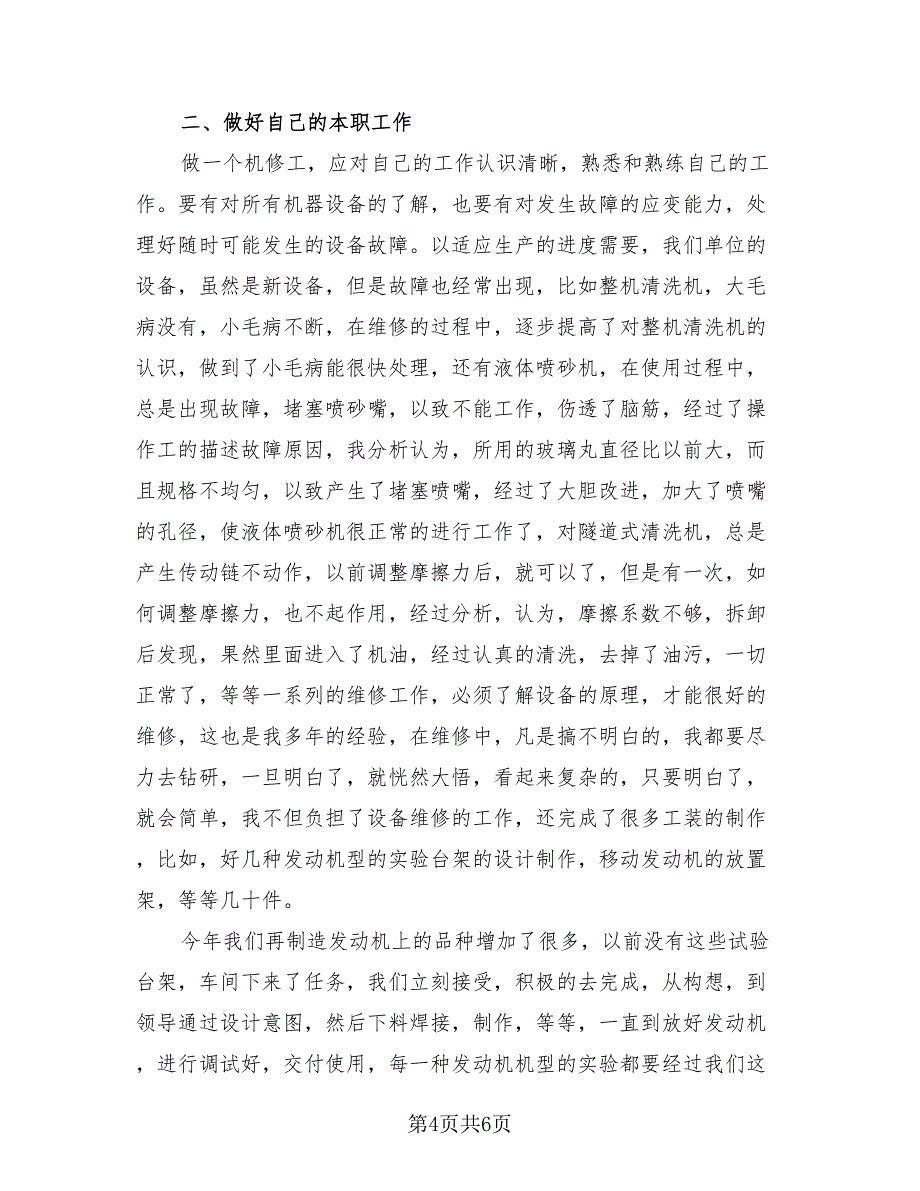 二、做好自己的本职工作
做一个机修工，应对自己的工作认识清晰，熟悉和熟练自己的工
作。要有对所有机器设备的了解，也要有对发生故障的应变能力，处
理好随时可能发生的设备故障。以适应生产的进度需要，我们单位的
设备，虽然是新设备，但是故障也经常出现，比如整机清洗机，大毛
病没有，小毛病不断，在维修的过程中，逐步提高了对整机清洗机的
认识，做到了小毛病能很快处理，还有液体喷砂机，在使用过程中，
总是出现故障，堵塞喷砂嘴，以致不能工作，伤透了脑筋，经过了操
作工的描述故障原因，我分析认为，所用的玻璃丸直径比以前大，而
且规格不均匀，以致产生了堵塞喷嘴，经过了大胆改进，加大了喷嘴
的孔径，使液体喷砂机很正常的进行工作了，对隧道式清洗机，总是
产生传动链不动作，以前调整摩擦力后，就可以了，但是有一次，如
何调整摩擦力，也不起作用，经过分析，认为，摩擦系数不够，拆卸
后发现，果然里面进入了机油，经过认真的清洗，去掉了油污，一切
正常了，等等一系列的维修工作，必须了解设备的原理，才能很好的
维修，这也是我多年的经验，在维修中，凡是搞不明白的，我都要尽
力去钻研，一旦明白了，就恍然大悟，看起来复杂的，只要明白了，
就会简单，我不但负担了设备维修的工作，还完成了很多工装的制作
，比如，好几种发动机型的实验台架的设计制作，移动发动机的放置
架，等等几十件。
今年我们再制造发动机上的品种增加了很多，以前没有这些试验
台架，车间下来了任务，我们立刻接受，积极的去完成，从构想，到
领导通过设计意图，然后下料焊接，制作，等等，一直到放好发动机
，进行调试好，交付使用，每一种发动机机型的实验都要经过我们这
第4页共6页